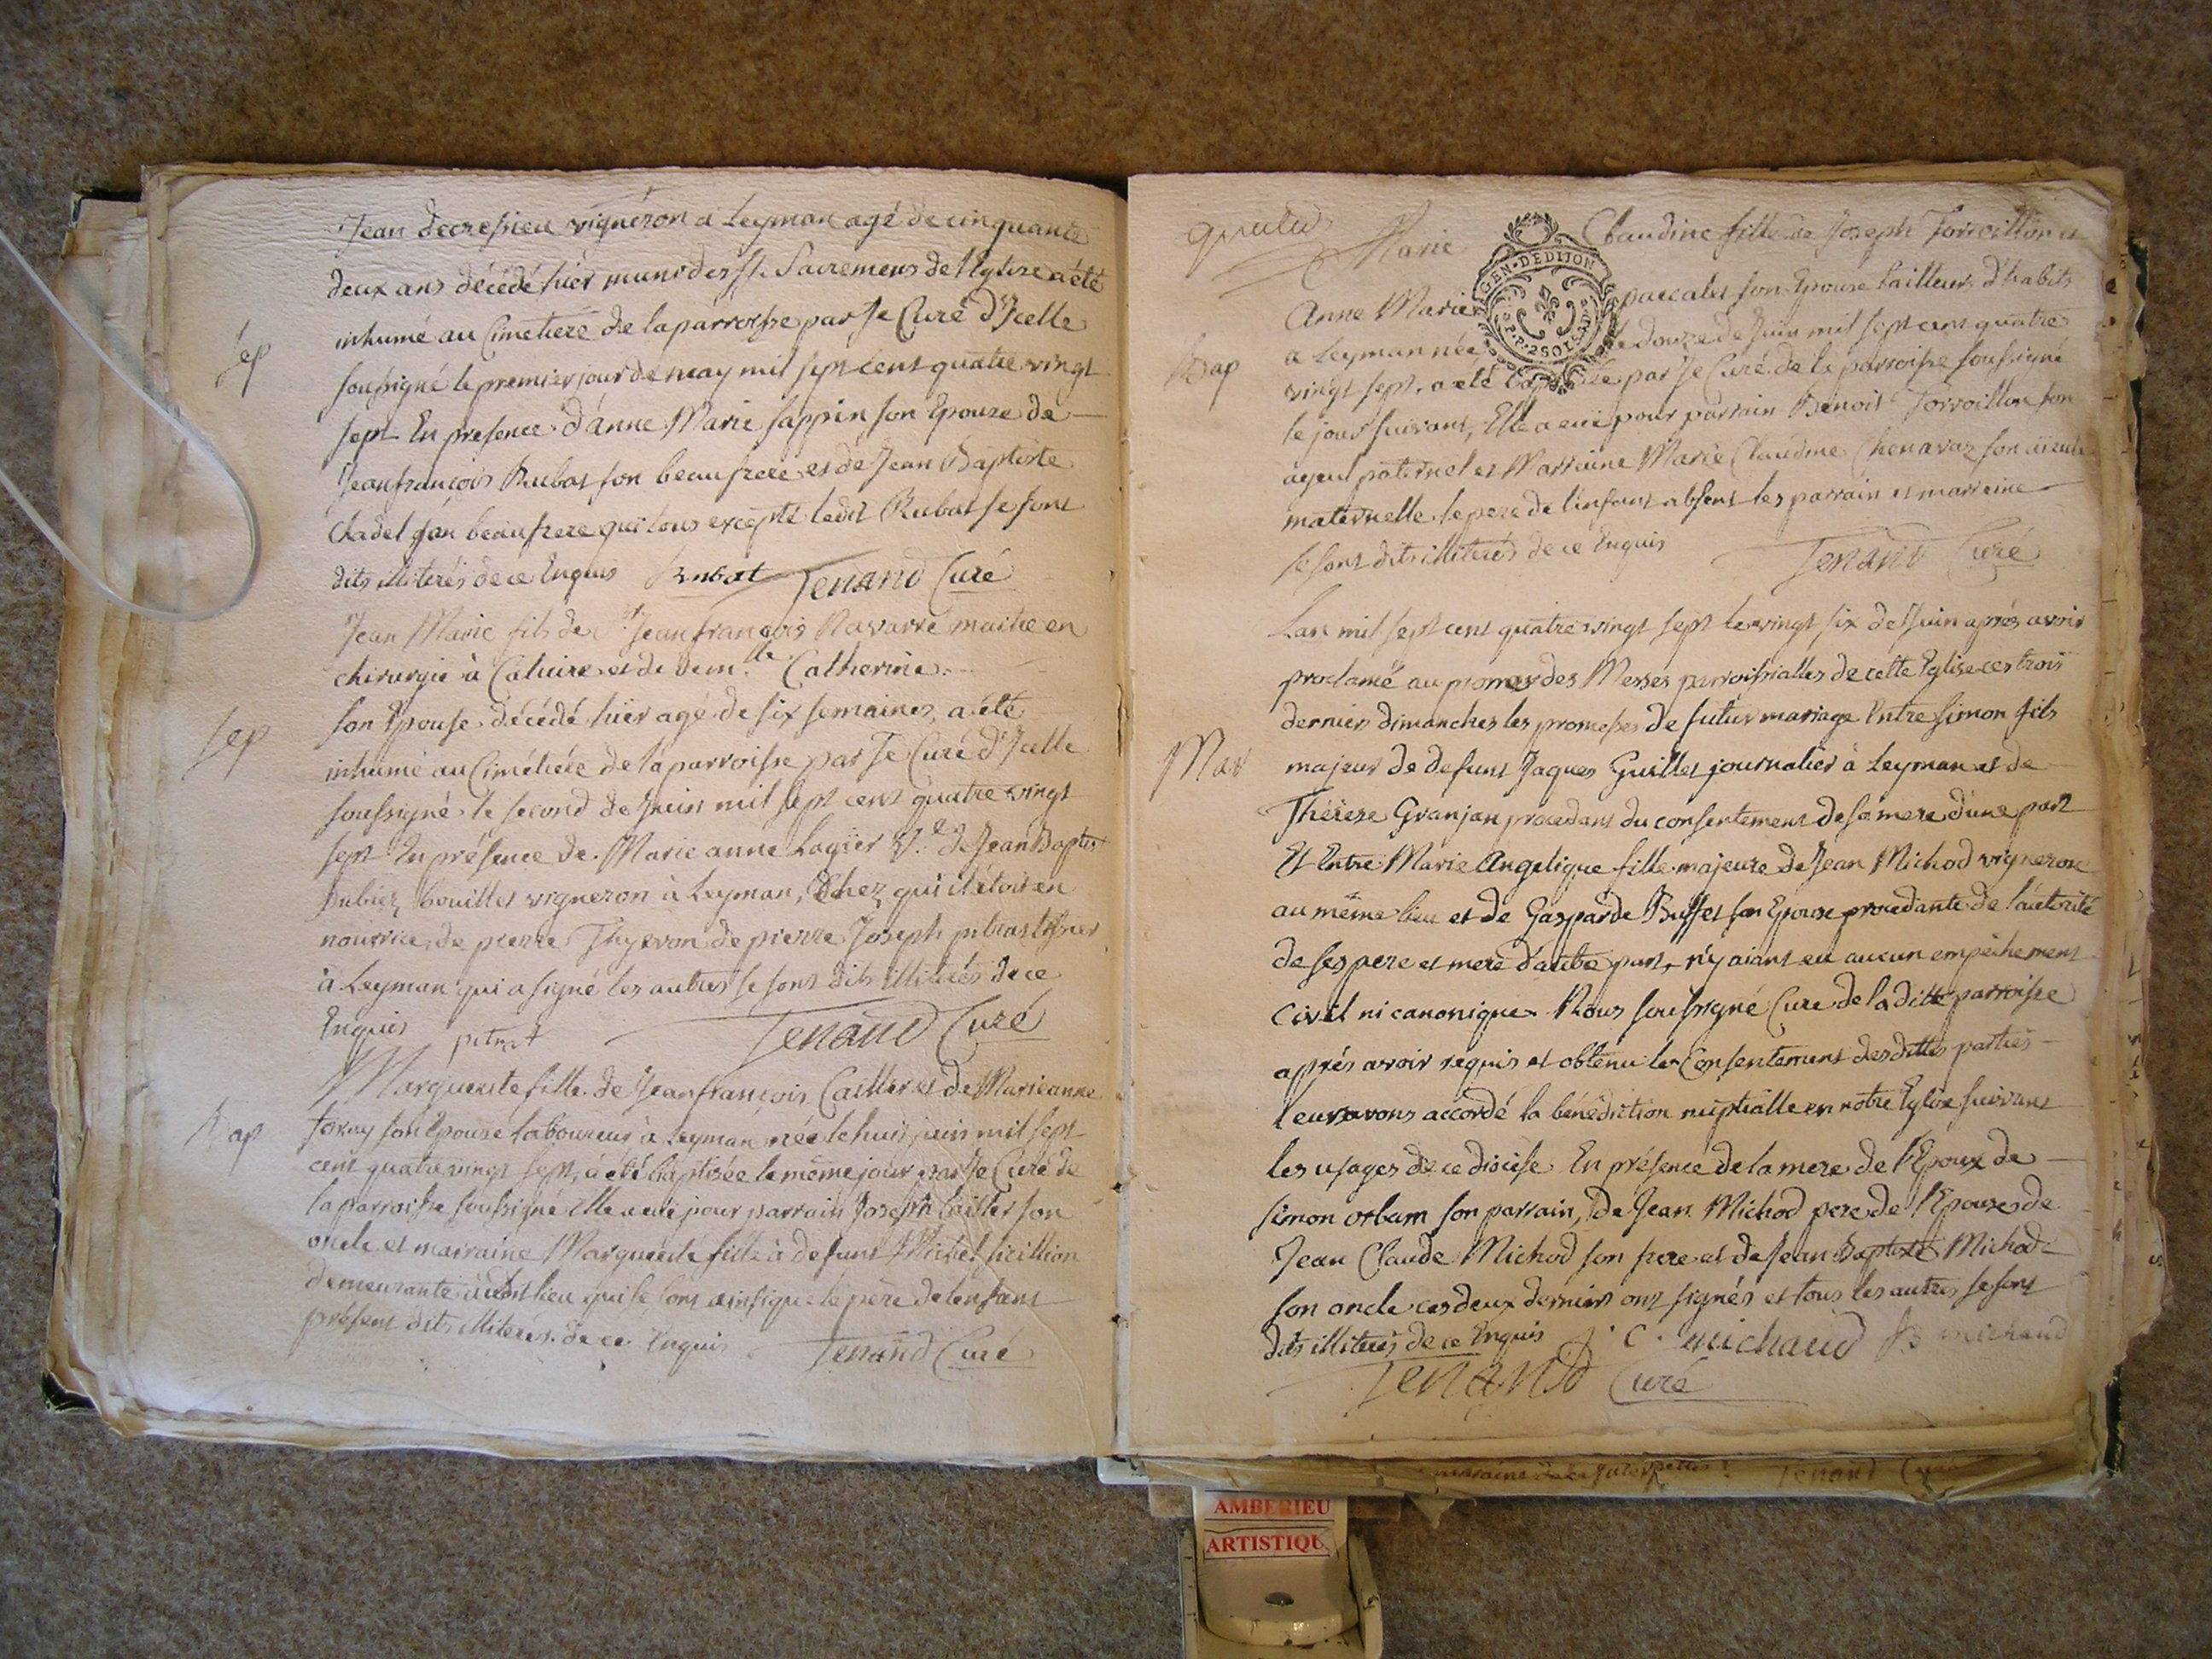 Jean decresieu vigneron à Leyman agé de cinquante
deux ans décédé hier muni des sts. Sacremens de l'Eglise a été
Sep
inhumé au Cimetiere de la parroisse par Je Curé d'Icelle
soussigné le premier jour de may mil sept cent quatre vingt
sept En presence d'anne Marie sappin son Epouze de
Jean françois Rubat son beaufrere et de Jean Baptiste
Chadel son beaufrere qui tous excepté ledit Rubat se sont
dits illiterés de ce Enquis Rubat Tenand Curé
Jean Marie fils de Sr. Jean françois Navarre maitre en
chirurgie à Caluire et de Demlle. Catherine
Sep
son Epouse décédé hier agé de six semaines, a été
inhumé au Cimétiére de la parroisse par Je Curé d'Icelle
soussigné le second de Juin mil sept cent quatre vingt
sept En présence de Marie anne Lagier Ve. de Jean Baptiste
Dubiez bouillet vigneron à Leyman, chez qui il étoit en
nourrice, de pierre Thyevon de pierre Joseph pitrat
à Leyman qui a signé les autres se sont dits illiterés de ce
Enquis pitrat Tenand Curé
Marguerite fille de Jean françois Cailler et de Marieanne
Bap
son Epouse laboureur à Leyman née le huit juin mil sept
cent quatre vingt sept, a été baptisée le même jour par Je Curé de
la parroisse soussigné Elle a eu pour parrain Joseph Cailler son
oncle et marraine Marguerite fille à defunt Michel
demeurante audit lieu qui se sont ainsi que le père de l'enfant
présent dits illiterés de ce Enquis Tenand Curé
Marie Claudine fille de Joseph Torroillon et
GEN. DE DIJON
P. P. 2 SOLS
Anne Marie son Epouse tailleur d'habits
Bap
a Leyman née le douze de Juin mil sept cent quatre
vingt sept, a été baptisée par Je Curé de la parroisse soussigné
le jour suivant, Elle a eu pour parrain Benoit Torroillon son
ayeul paternel et Marraine Marie Claudine Chenavaz son aieule
maternelle le pere de l'enfant absent les parrain et marreine
se sont dits illiterés de ce Enquis Tenand Curé
Lan mil sept cent quatre vingt sept le vingt six de Juin aprés avoir
proclamé au prone des Messes parroissialles de cette Eglise ces trois
derniers dimanches les promesses de futur mariage Entre simon fils
Mar
majeur de defunt Jaques Guillet journalier à Leyman et de
Thérèse Granjan procedant du consentement de sa mere d'une part
Et Entre Marie Angelique fille majeure de Jean Michod vigneron
au même lieu et de Gasparde Buffet son Epouse procedante de l'autorité
de ses pere et mere d'autre part, n'y aiant eu aucun empêchement
civil ni canonique. Nous soussigné Cure de la ditte parroisse
aprés avoir requis et obtenu le Consentement desdittes parties
leurs avons accordé la bénédiction nuptialle en notre Eglise suivant
les usages de ce diocèse En présence de la mere de l'Epoux de
simon orbam son parrain, de Jean Michod pere de l'Epouse de
Jean Claude Michod son frere et de Jean Baptiste Michod
son oncle ces deux derniers ont signés et tous les autres se sont
dits illiterés de ce Enquis J. C. michaud JB michaud
Tenand Curé
Tenand Curé
AMBERIEU
ARTISTIQU